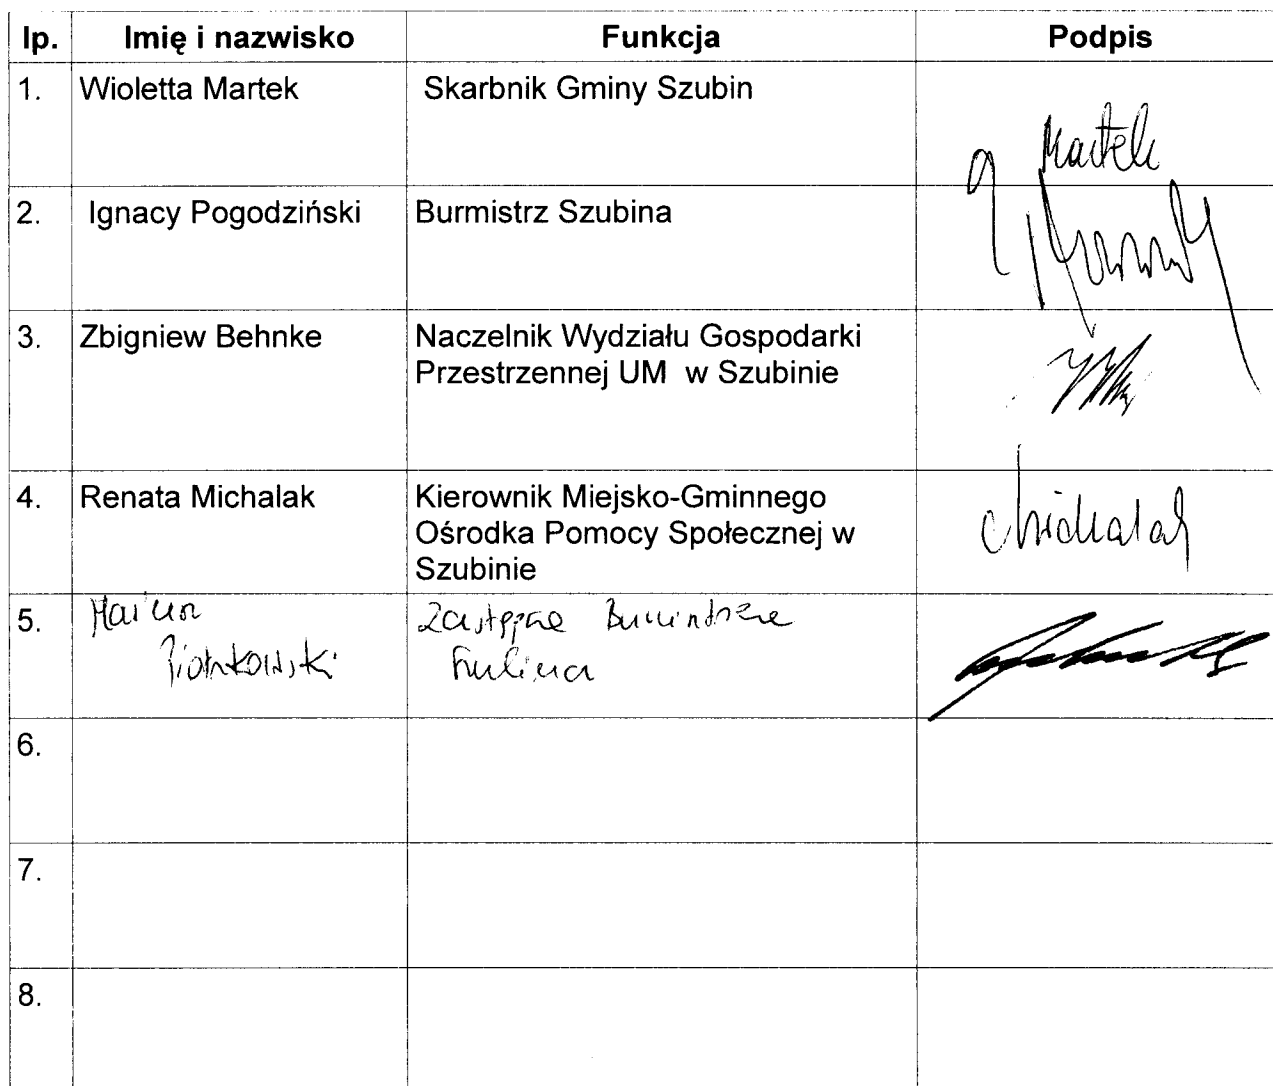 lp. Imię i nazwisko Funkcja Podpis
1. Wioletta Martek Skarbnik Gminy Szubin
Martek
2. Ignacy Pogodziński Burmistrz Szubina
3. Zbigniew Behnke Naczelnik Wydziału Gospodarki
Przestrzennej UM w Szubinie
4. Renata Michalak Kierownik Miejsko-Gminnego
Ośrodka Pomocy Społecznej w
Szubinie
Michalak
5. Mariusz Zastępca Burmistrza
Piotrkowski Szubina
6.
7.
8.